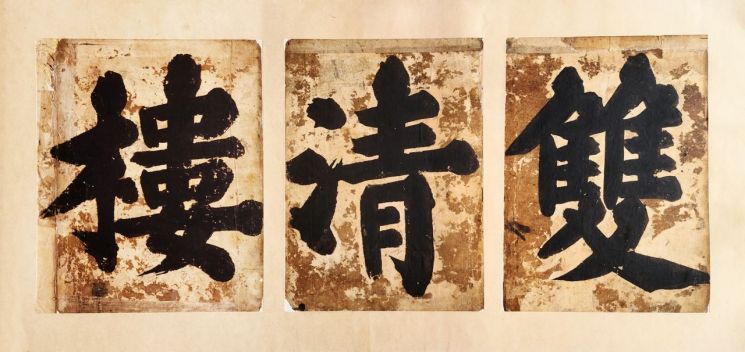 雙清樓